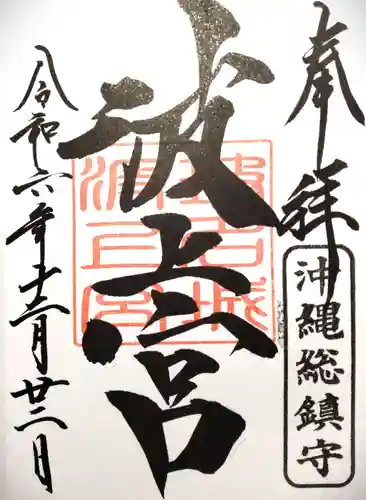 奉拝
沖縄総鎮守
波上宮
令和六年十二月廿二日